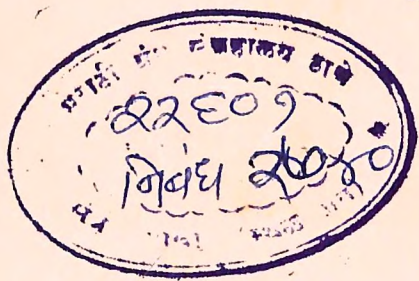 मराठी ग्रंथ संग्रहालय ठाणे
२२६०१
निबंध २७०४०